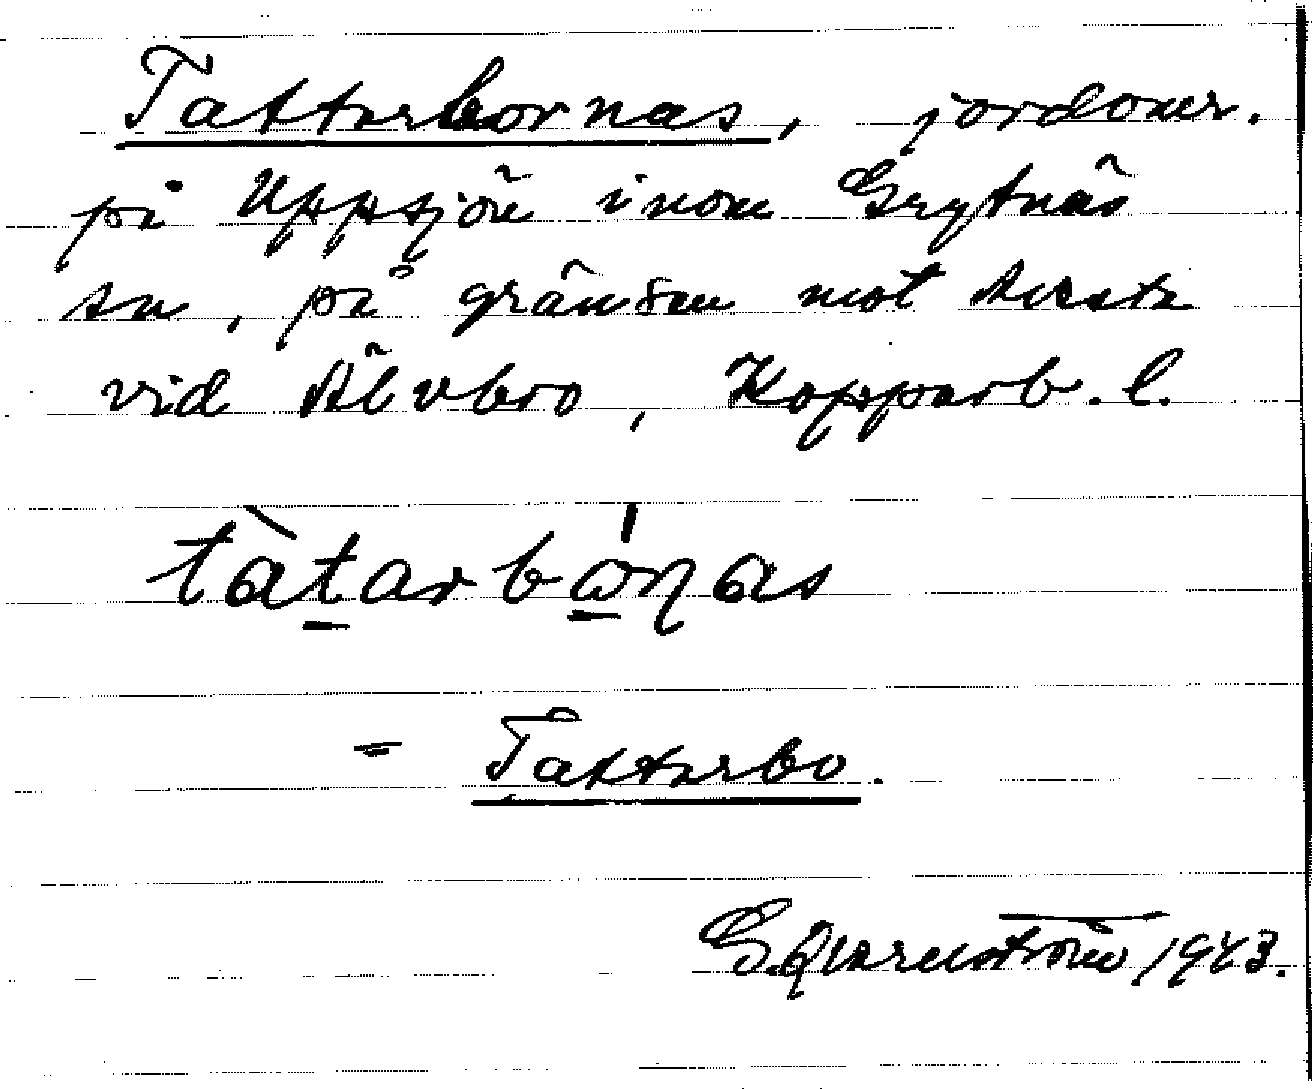 Tattarbornas, jordomr.
på Uppsjön inom Grytnäs
sn, på gränsen mot Avesta
vid Älvbro, Kopparb. l.
tàtarbo̱ɳas
= Tattarbo.
G. Qvarnström 1943.